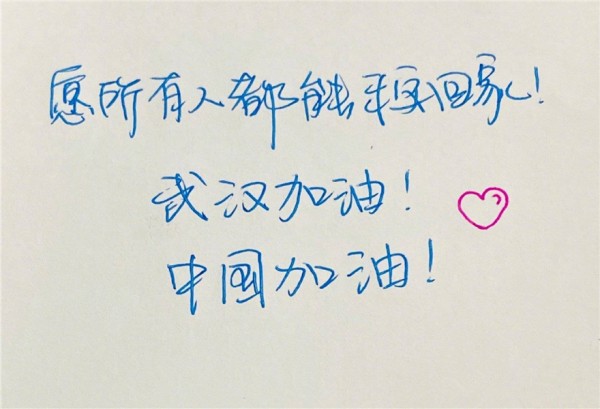 愿所有人都能平安回家!
武汉加油!
中國加油!